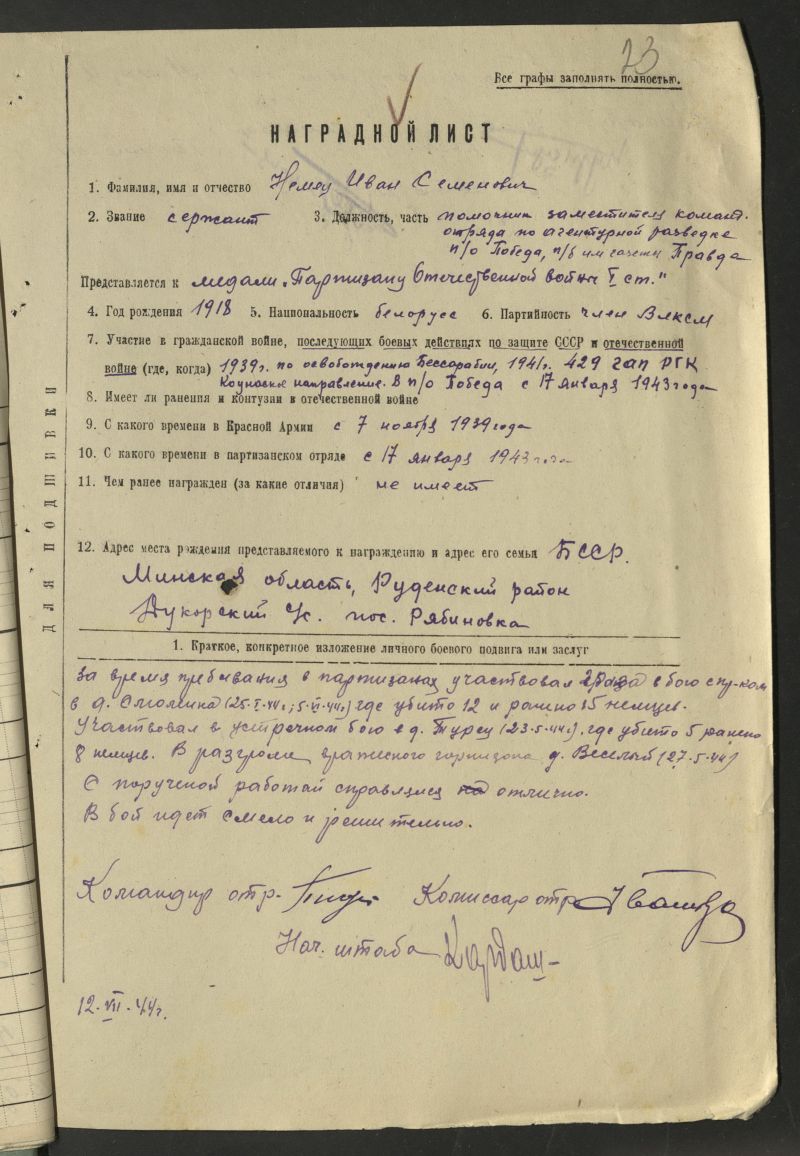 23
Все графы заполнять полностью.
НАГРАДНОЙ ЛИСТ
1. Фамилия, имя и отчество Немец Иван Семенович
2. Звание сержант 3. Должность, часть помочник заместителя команд.
отряда по агентурной разведке
п/о Победа, п/б им газеты Правда
Представляется к медали „Партизану Отечественной войны I ст."
4. Год рождения 1918 5. Национальность белорусс 6. Партийность член Влксм
7. Участие в гражданской войне, последующих боевых действиях по защите СССР и отечественной
войне (где, когда) 1939г. по освобождению Бессарабии, 1941г. 429 гап РГК
направление. В п/о Победа с 17 января 1943 года
8. Имеет ли ранения и контузии в отечественной войне
9. С какого времени в Красной Армии с 7 ноября 1939 года
10. С какого времени в партизанском отряде с 17 января 1943 года
11. Чем ранее награжден (за какие отличия) не имеет
12. Адрес места рождения представляемого к награждению и адрес его семьи БССР.
Минская область, Руденский район
Дукорский с/с. пос. Рябиновка
1. Краткое, конкретное изложение личного боевого подвига или заслуг
За время пребывания в партизанах участвовал 2 раза в бою с
в д. (25-I-44г.; 5-VI-44г.) где убито 12 и ранено 15 немцев.
Участвовал в устречном бою в д. Турец (23-5-44г.), где убито 5 ранено
8 немцев. В разгроме вражеского гарнизона д. Веселый (27-5-44)
С порученой работай справлялся отлично.
В бой идет смело и решительно.
Командир отр. Комиссар отр.
Нач. штаба Кардаш
12-VII-44г.
ДЛЯ ПОДШИВКИ